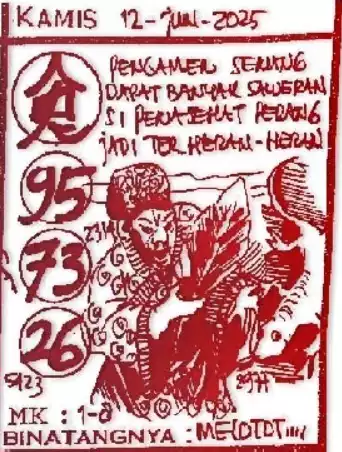 KAMIS 12-JUN-2025
PENGAMEN SENANG
DAPAT BANYAK SAWERAN
SI PENASEHAT PERANG
JADI TERHERAN-HERAN
95
73
26
MK : 1-8
BINATANGNYA : MELOTOT